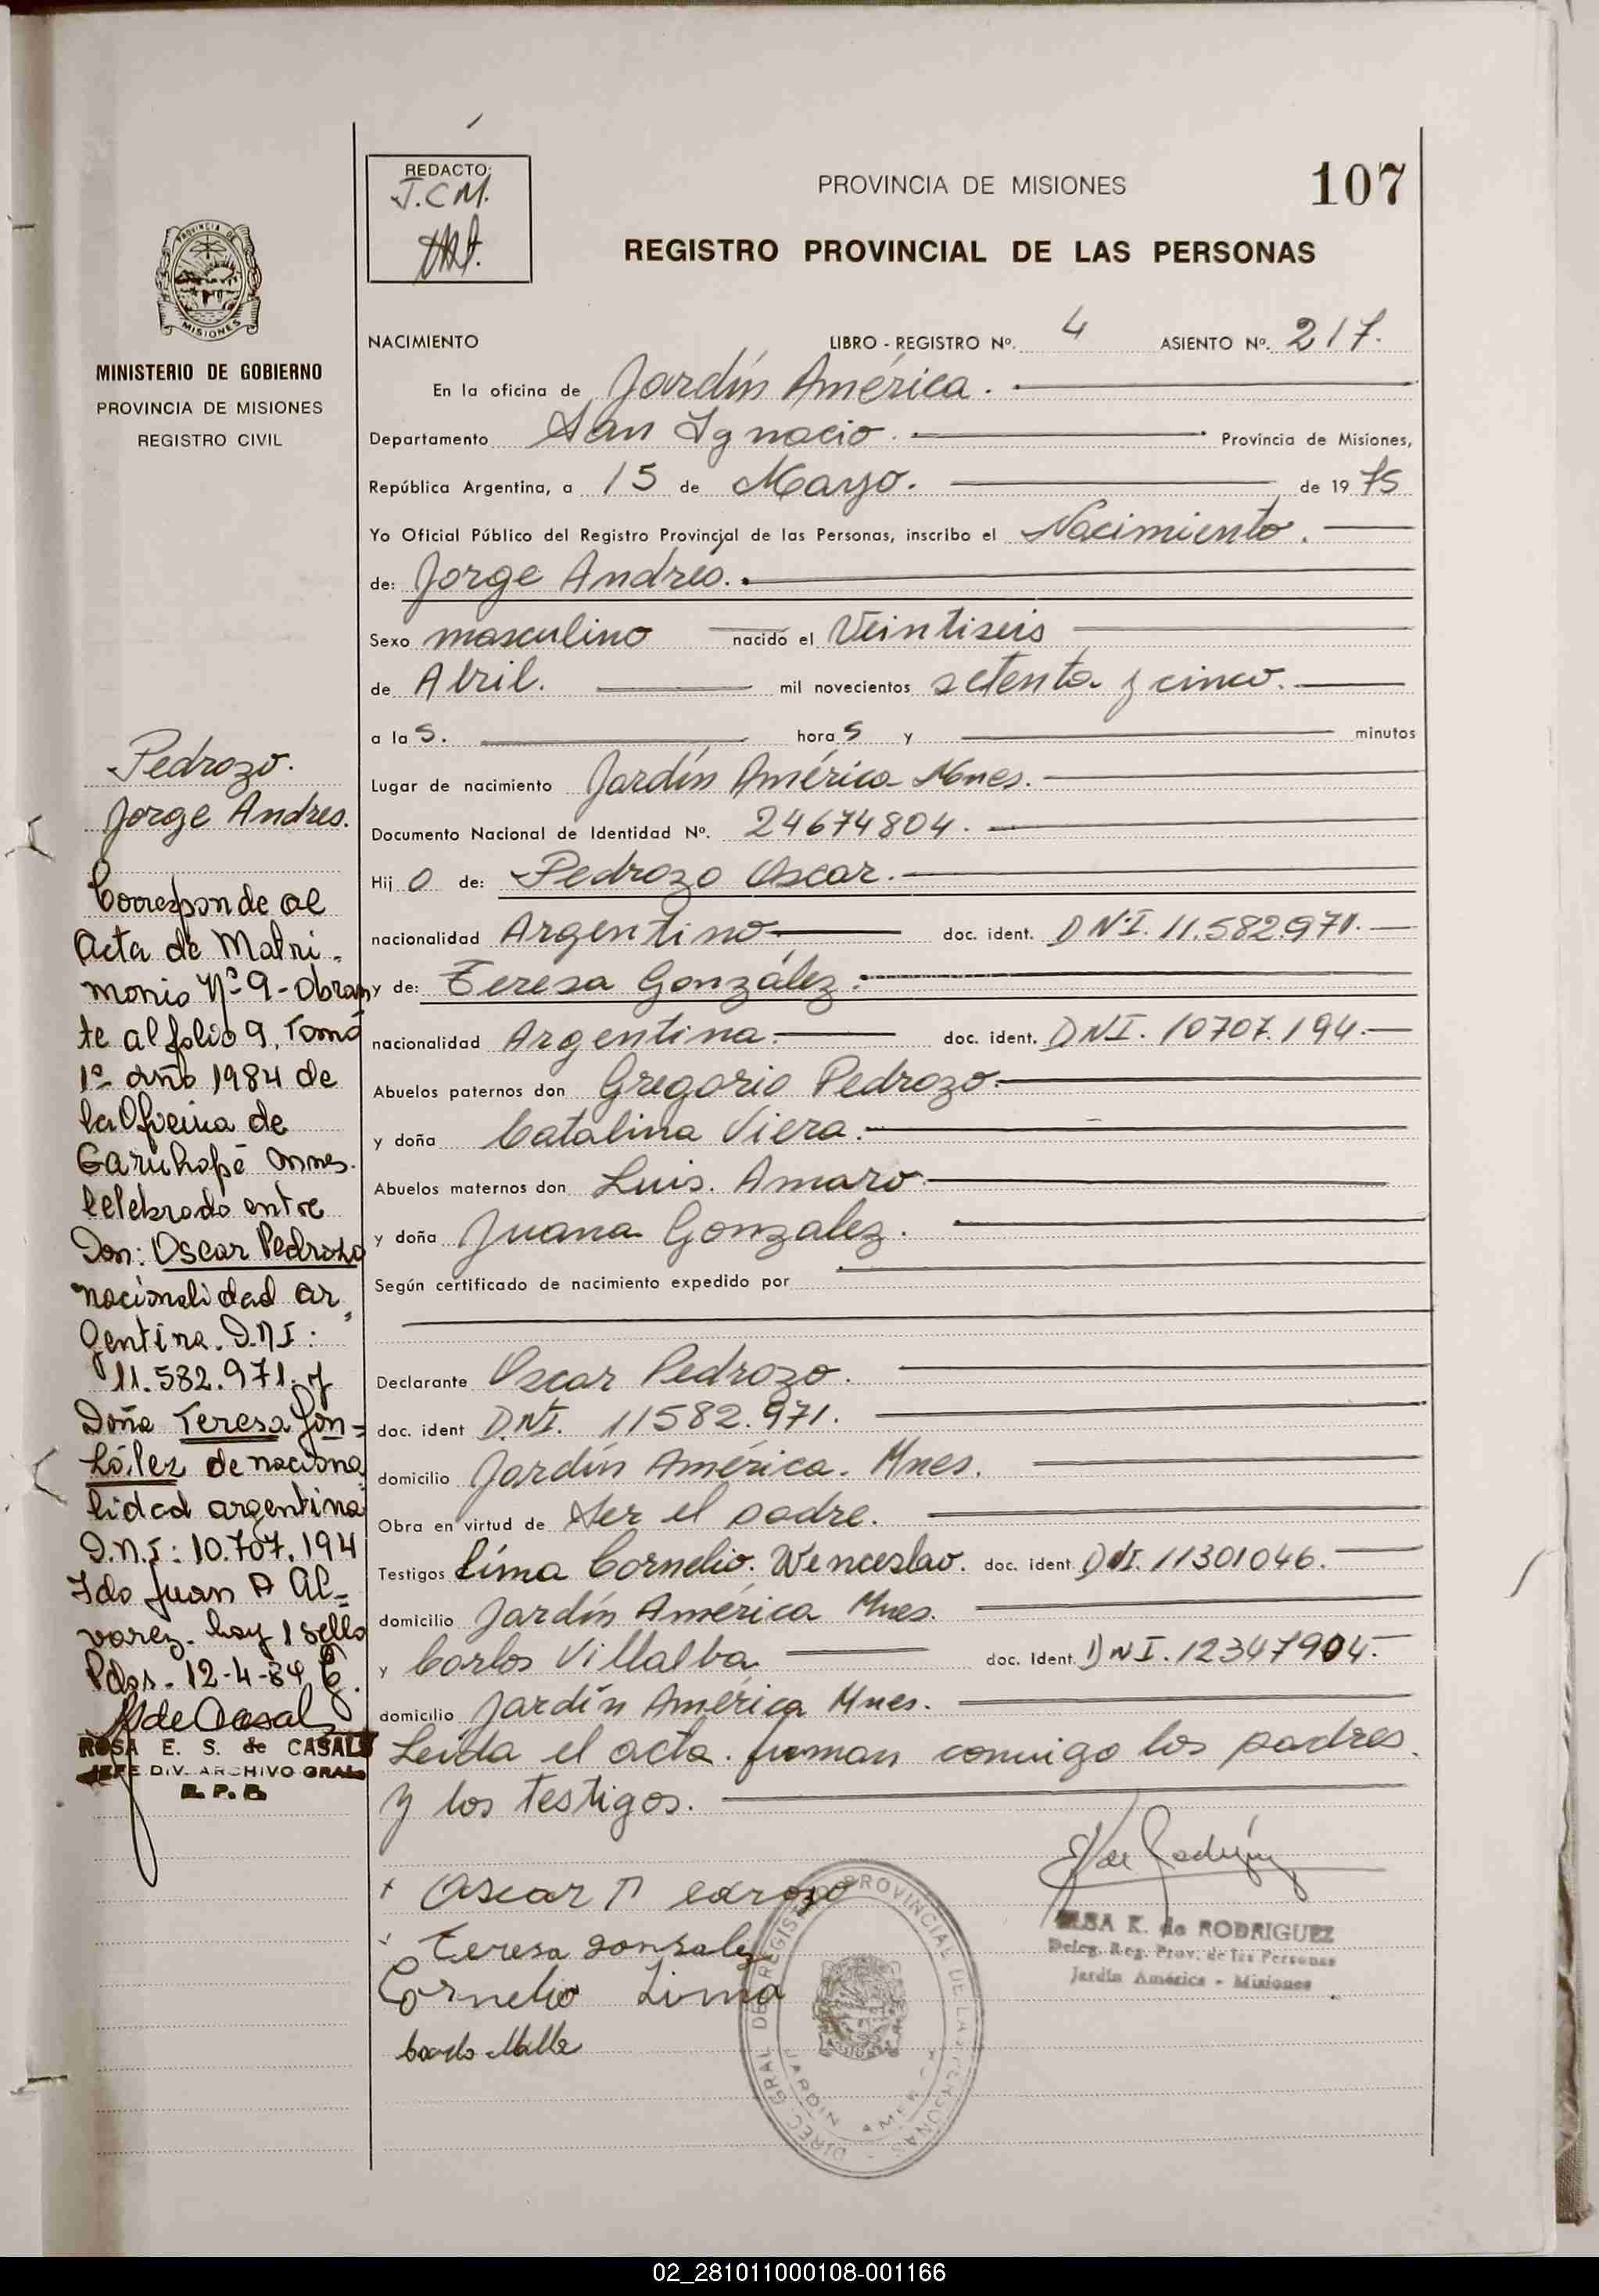 REDACTO:
J.C.M.
PROVINCIA DE MISIONES
107
REGISTRO PROVINCIAL DE LAS PERSONAS
PROVINCIA DE
MISIONES
MINISTERIO DE GOBIERNO
PROVINCIA DE MISIONES
REGISTRO CIVIL
NACIMIENTO LIBRO - REGISTRO Nº. 4 ASIENTO Nº. 217.
En la oficina de Jardín América.
Departamento San Ignacio. Provincia de Misiones,
República Argentina, a 15 de Mayo. de 1975
Yo Oficial Público del Registro Provincial de las Personas, inscribo el Nacimiento.
de: Jorge Andres.
Sexo masculino nacido el Veintiseis
de Abril. mil novecientos setenta y cinco.
a la 5. hora s y minutos
Lugar de nacimiento Jardín América Mnes.
Documento Nacional de Identidad Nº. 24674804.
Hij o de: Pedrozo Oscar.
nacionalidad Argentino doc. ident. DNI. 11.582.971.
y de: Teresa González.
nacionalidad Argentina. doc. ident. DNI. 10707.194.
Abuelos paternos don Gregorio Pedrozo.
y doña Catalina Viera.
Abuelos maternos don Luis. Amaro
y doña Juana Gonzalez.
Según certificado de nacimiento expedido por
Declarante Oscar Pedrozo.
doc. ident D.NI. 11582.971.
domicilio Jardín América. Mnes.
Obra en virtud de Ser el padre.
Testigos Lima Cornelio. Wenceslao. doc. ident. DNI. 11301046.
domicilio Jardín América Mnes.
y Carlos Villalba doc. Ident. DNI. 12347904.
domicilio Jardín América Mnes.
Leida el acta. firman conmigo los padres.
y los testigos.
Pedrozo.
Jorge Andres.
Corresponde al
Acta de Matri-
monio Nº 9 - Obran
te al folio 9, Tomo
1º año 1984 de
la Oficina de
Garuhapé Mnes.
Celebrado entre
Don: Oscar Pedrozo
nacionalidad ar
gentina. D.N.I.
11.582.971. y
Doña Teresa Gon-
zález de naciona
lidad argentina
D.N.I: 10.707.194
Fdo Juan A Al-
varez. hay 1 sello
Pdas. 12-4-84
de Casals
ROSA E. S. de CASALS
JEFE DIV. ARCHIVO GRAL
R. P. P.
Oscar P edrozo
Teresa gonzalez
Cornelio Lima
ELSA K. de RODRIGUEZ
Deleg. Reg. Prov. de las Personas
Jardín América - Misiones
DIREC. GRAL DE REGISTRO PROVINCIAL DE LAS PERSONAS
JARDIN AMERICA
02_281011000108-001166